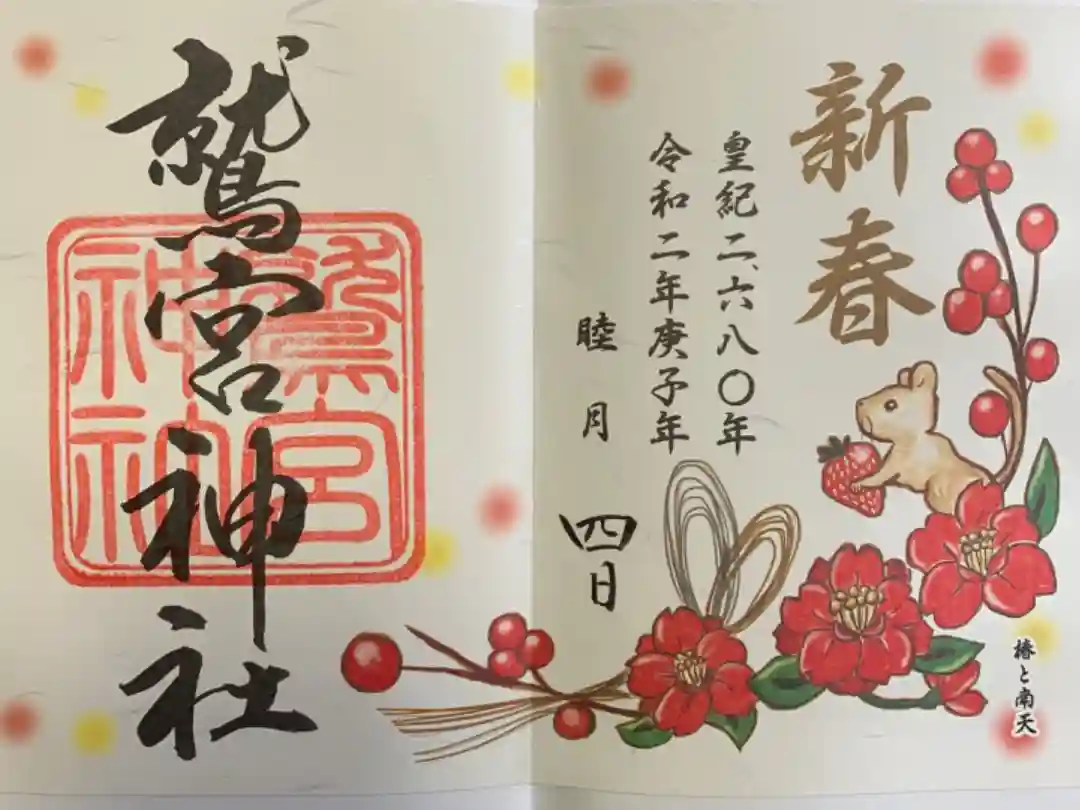 新春
皇紀二、六八〇年
令和二年庚子年
睦月
四日
椿と南天
鷲宮神社
鷲宮
神社